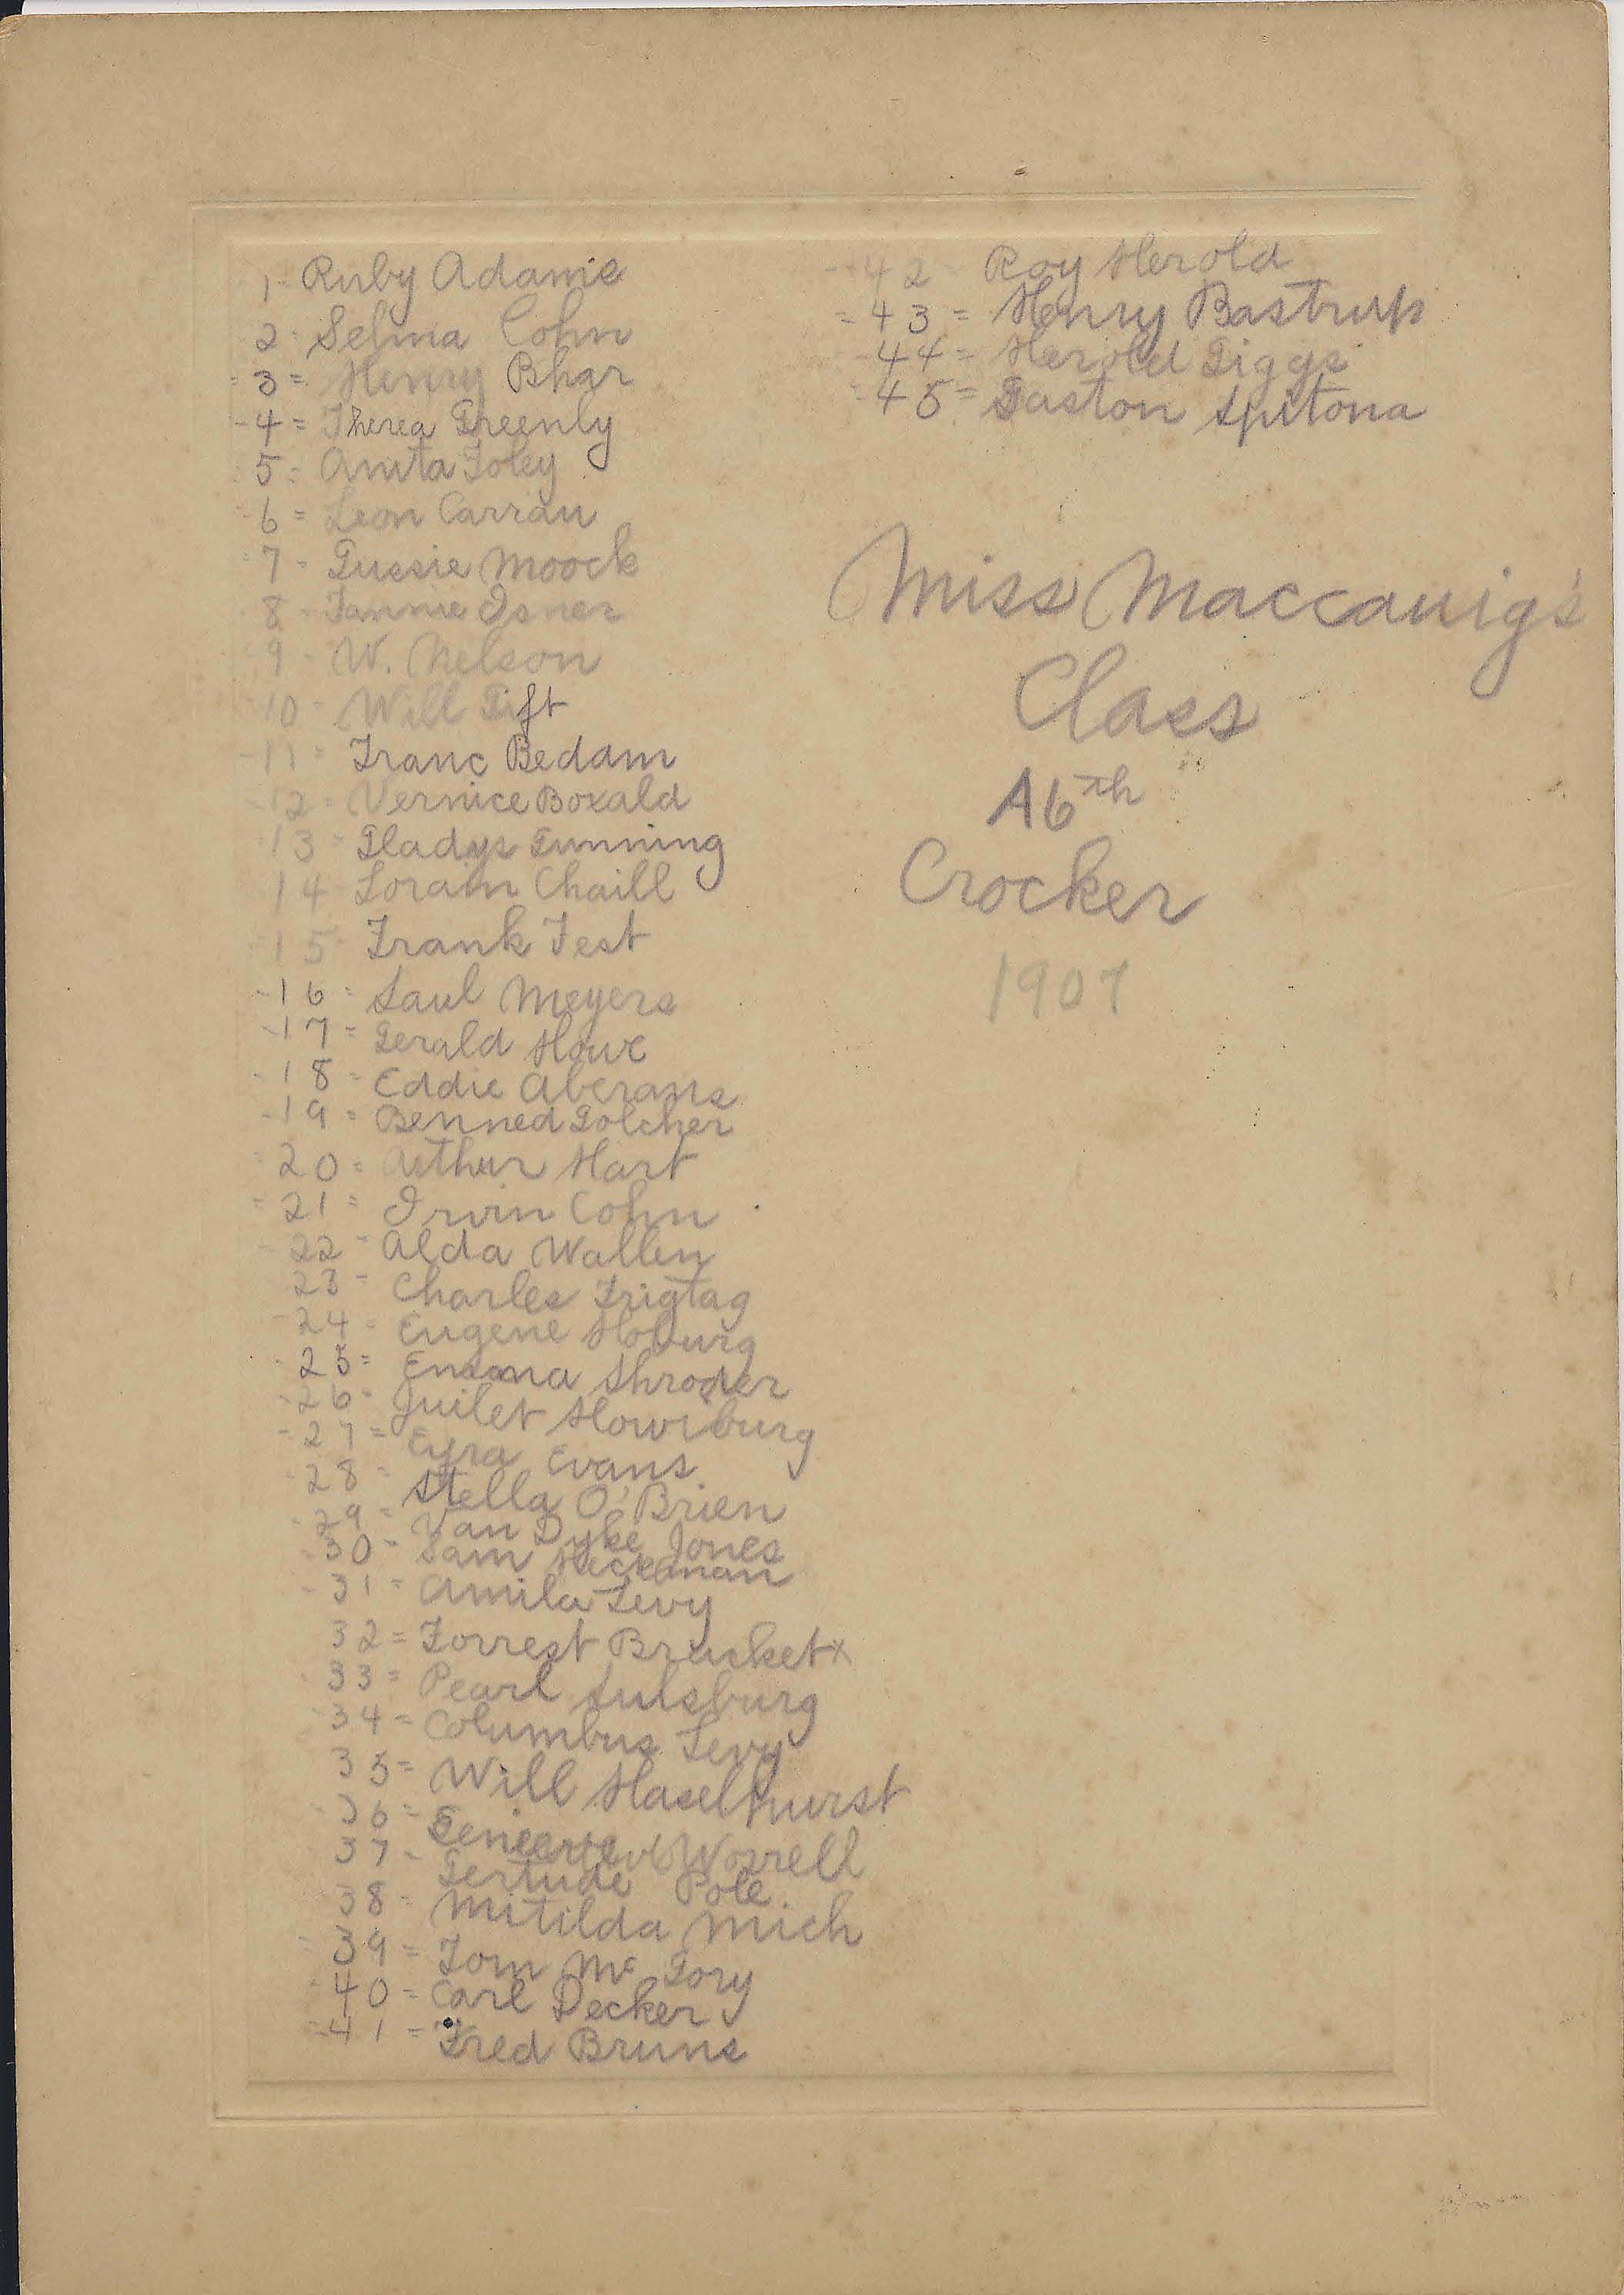 1- Ruby Adams
2- Selma Cohn
-3= Henry Bhar
-4= Therea Greenly
5- Anita Foley
6= Leon Carrau
7- Gussie Moock
8- Fannie Isner
9- W. Nelson
10- Will Gift
-11= Franc Bedam
-12= Vernice Boxald
13= Gladys Gunning
14 Lorain Chaill
15 Frank Fest
-16= Saul Meyers
-17= Gerald Howe
-18= Eddie Aberams
-19= Benned Golcher
20= Arthur Hart
-21= Irvin Cohn
-22- Alda Wallen
23= Charles Frigtag
-24= Eugene Hoburg
-25= Emma Shroder
-26- Juilet Howiburg
-27= Eyra Evans
-28- Stella O'Brien
-29- Van Dyke Jones
-30- Sam Heckman
-31= Amila Levy
32= Forrest Brucket x
33= Pearl Sulsburg
34= Columbus Levy
35= Will Haselhurst
-36= Worrell
37- Gertude Pole.
38- Mitilda Mich
39= Tom Mc Gory
-40= Carl Decker
-41= Fred Bruns
-42- Roy Herold
=43= Henry Bastrup
-44= Herold Giggs
-45= Gaston Spitona
Miss Maccauig's
Class
A6th
Crocker
1907